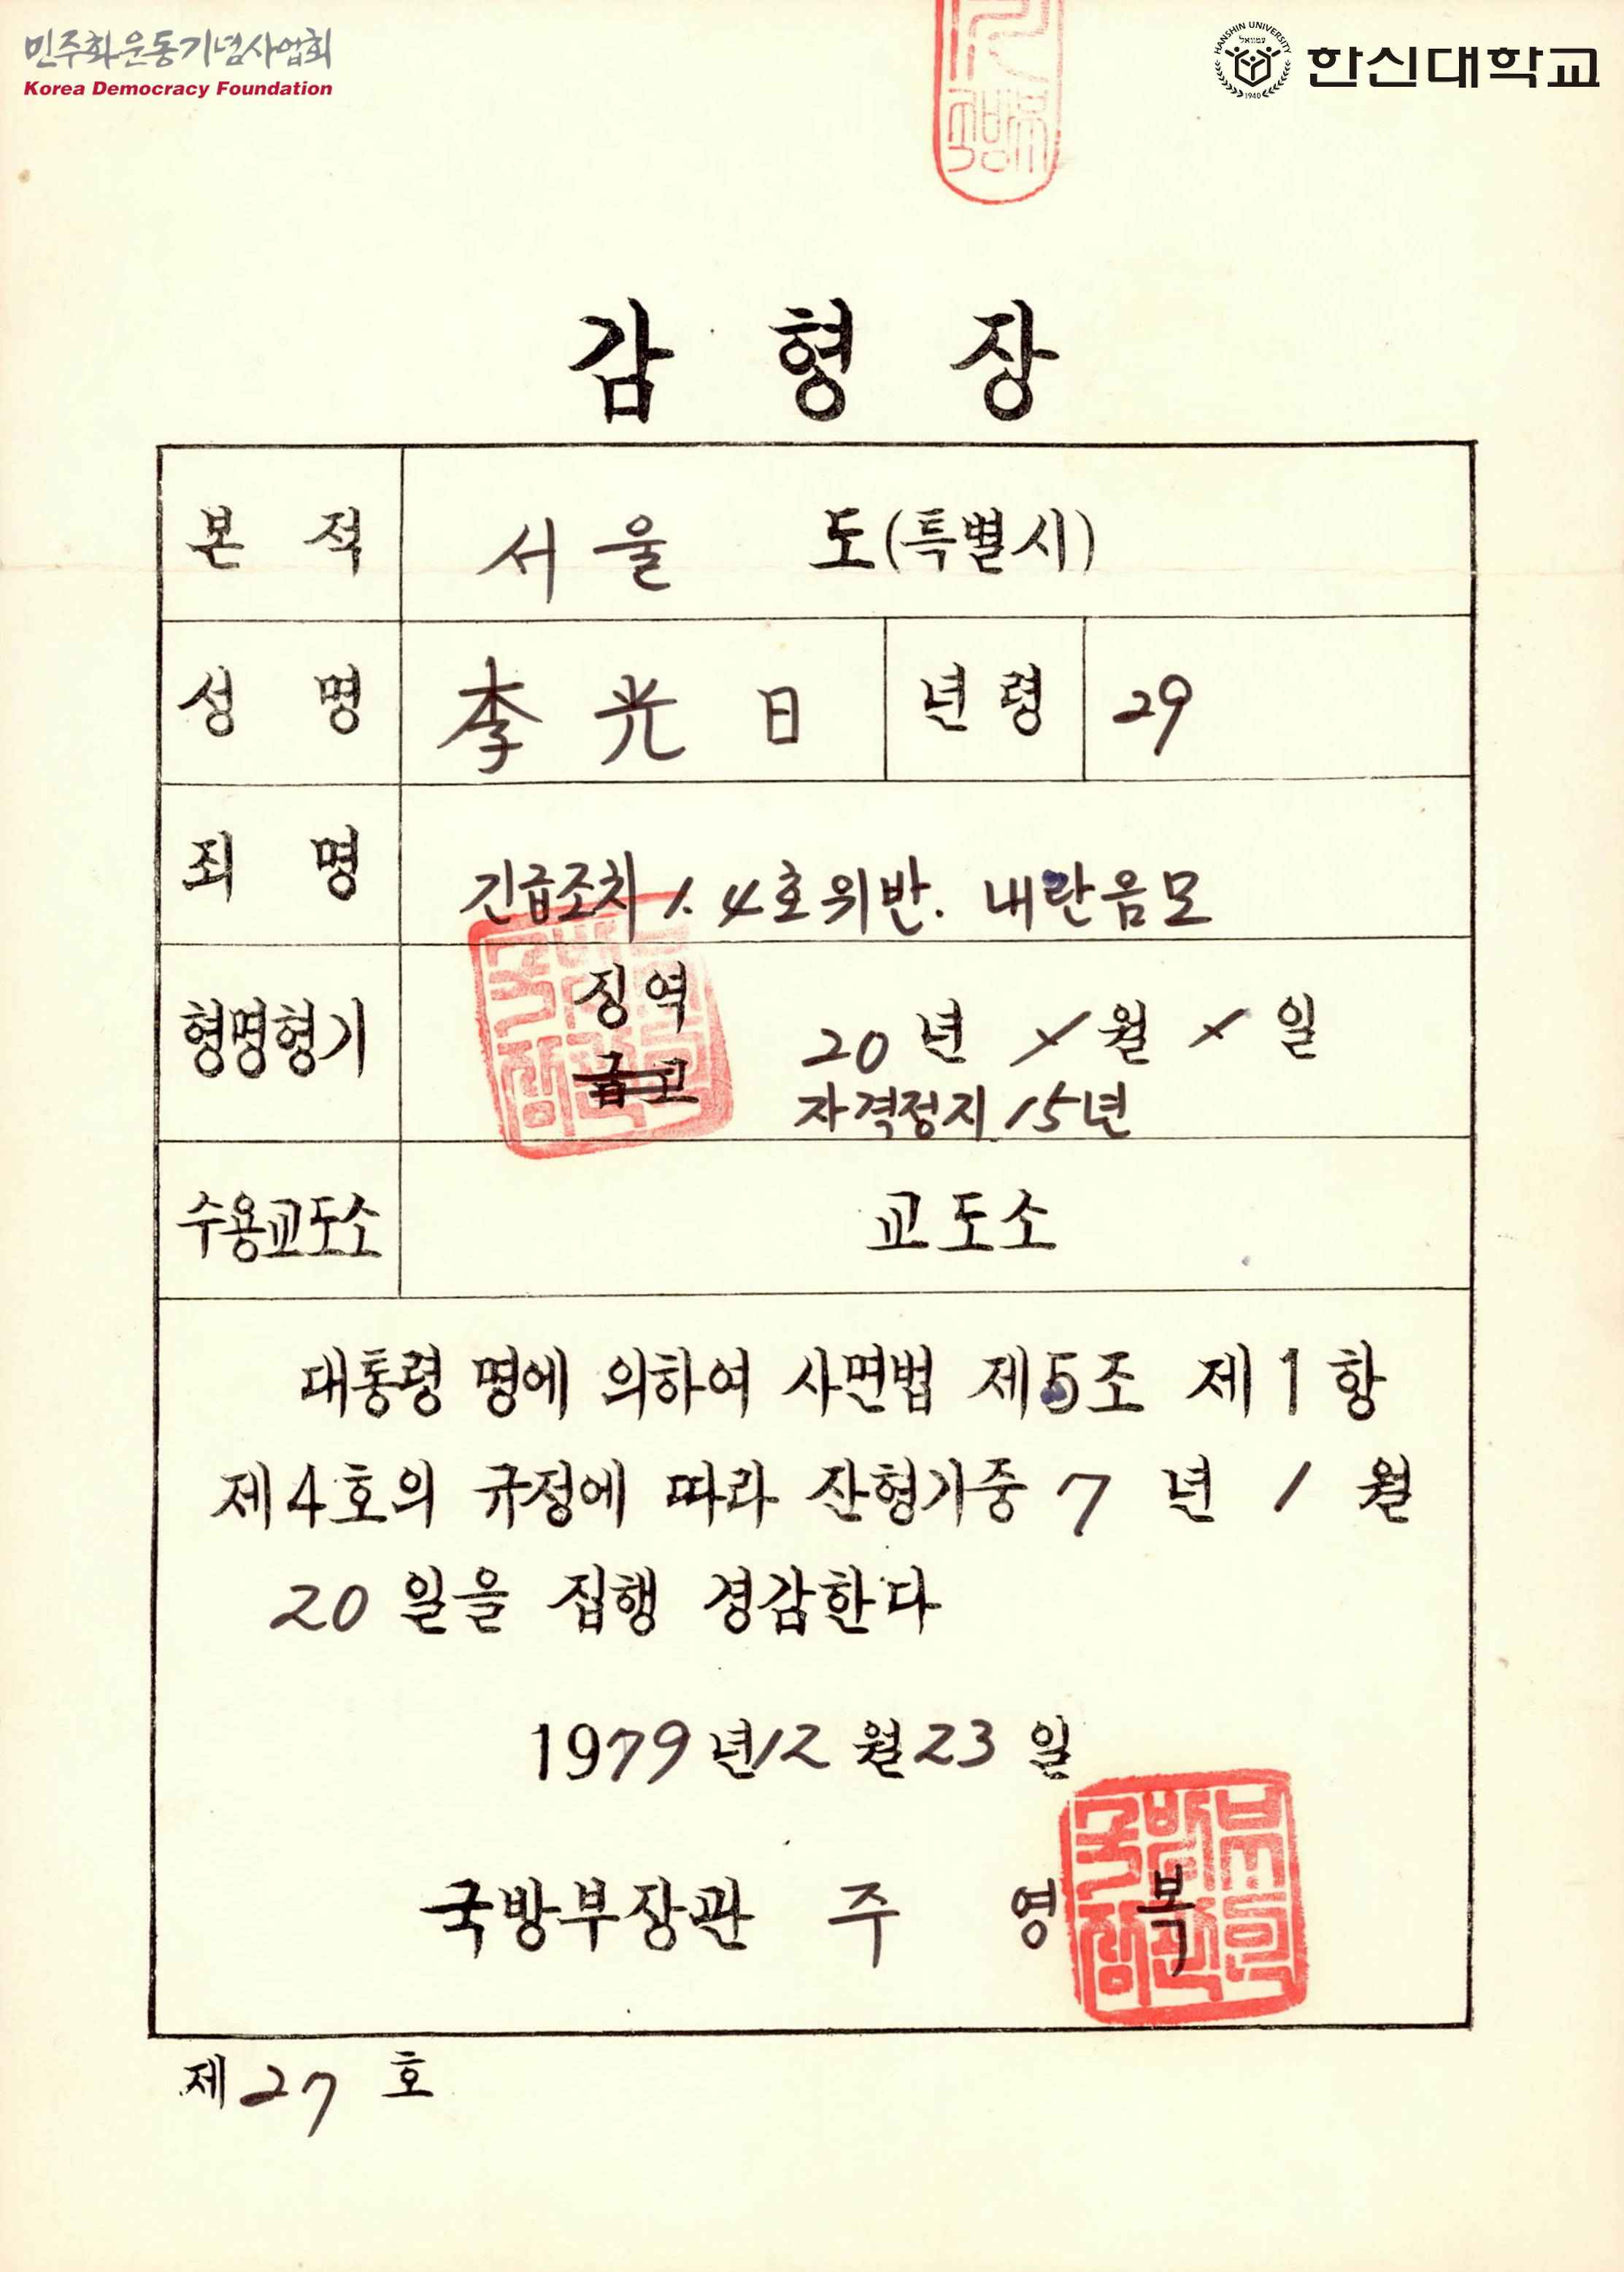 민주화운동기념사업회
Korea Democracy Foundation
HANSHIN UNIVERSITY
1940
한신대학교
감 형 장
본 적 서울 도(특별시)
성 명 李光日 년령 29
죄 명 긴급조치 1. 4호위반. 내란음모
형명형기 징역 20년 ×월 ×일
금고 자격정지 15년
수용교도소 교도소
대통령 명에 의하여 사면법 제5조 제1항
제4호의 규정에 따라 잔형기중 7 년 1 월
20 일을 집행 경감한다
1979년 12월 23일
국방부장관 주 영 복
국방부장관인
제 27 호